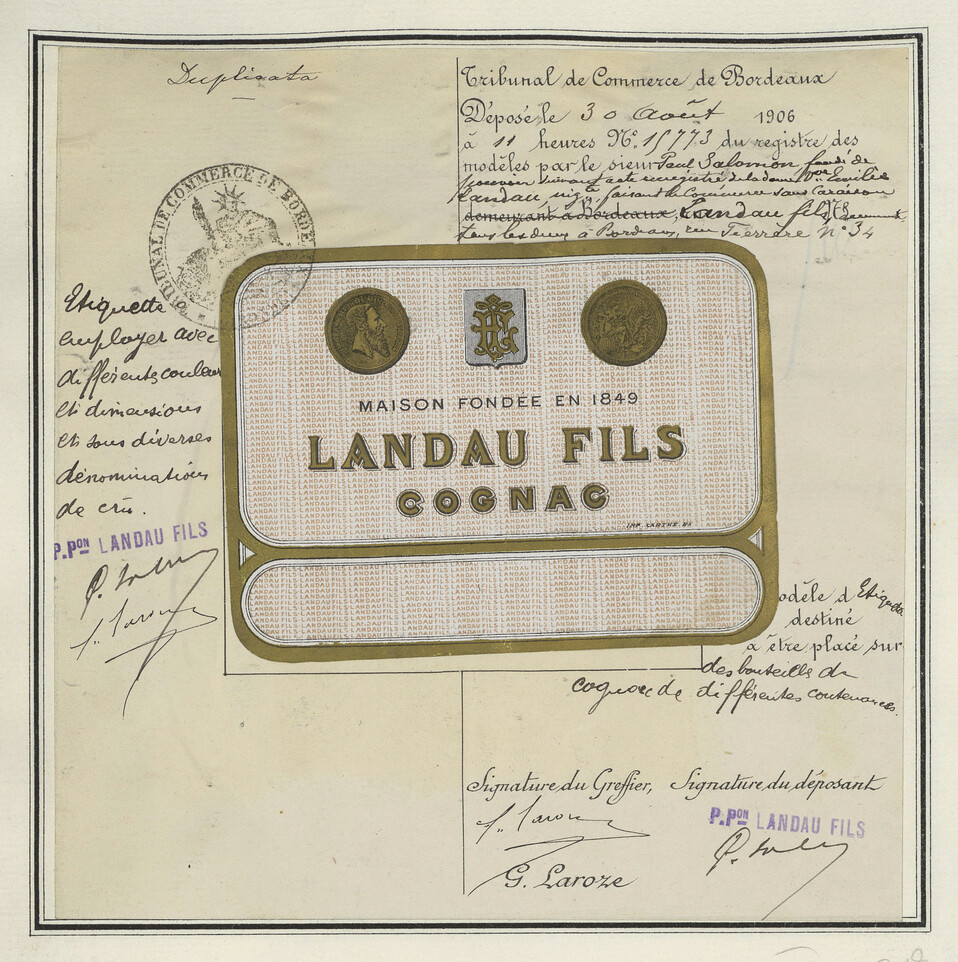 Duplicata
Tribunal de Commerce de Bordeaux
Déposé le 30 Août 1906
à 11 heures N° 15773 du registre des
modèles par le sieur Paul Salomon fondé de
pouvoir suivant acte enregistré de la dame Vve Emilie
Landau, nég.te, faisant le Commerce sous la raison
demeurant à Bordeaux, Landau fils, demeurant
tous les deux à Bordeaux, rue Ferrere N° 34
TRIBUNAL DE COMMERCE DE BORDEAUX
Etiquette
employer avec
différents couleurs
et dimensions
et sous diverses
dénominations
de crû.
P.PON LANDAU FILS
MAISON FONDÉE EN 1849
LANDAU FILS
COGNAC
odèle d'Etiquette
destiné
à être placé sur
des bouteilles de
cognac de différentes contenances.
Signature du Greffier, Signature du déposant
P.PON LANDAU FILS
G. Laroze